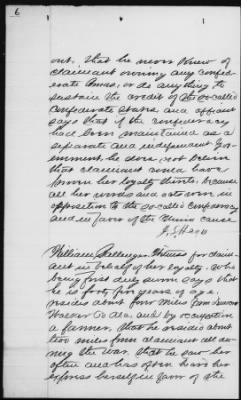 6
out, that he never knew of
claimant owning any confed-
erate Bonds, or do anything to
sustain the credit of the so-called
Confederate States, and affiant
says that if the confederacy
had been maintained as a
separate and independent Gov-
ernment, he does not believe
that claimant could have
proven her loyalty thereto, because
all her words and acts were in
opposition to the so-called Confederacy
and in favor of the Union cause
William Ballenger Witness for claim-
ant in behalf of her loyalty, who
being first duly sworn says that
he is forty five years of age,
resides about four miles from
Walker Co Ala, and by occupation
a farmer, that he resided about
two miles from claimant all du-
ring the war, that he saw her
often and has often heard her
express herself in favor of the